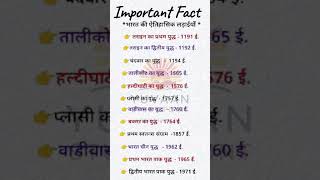 Important Fact
*भारत की ऐतिहासिक लड़ाईयाँ *
👉 तराइन का प्रथम युद्ध - 1191 ई.
👉 तराइन का द्वितीय युद्ध - 1192 ई.
👉 चंदवार का युद्ध - 1194 ई.
👉 तालीकोट का युद्ध - 1565 ई.
👉 हल्दीघाटी का युद्ध - 1576 ई.
👉 प्लासी का युद्ध - 1757 ई.
👉 वाडीवास का युद्ध - 1760 ई.
👉 बक्सर का युद्ध - 1764 ई.
👉 प्रथम स्वतंत्रता संग्राम -1857 ई.
👉 भारत चीन युद्ध - 1962 ई.
👉 प्रथम भारत पाक युद्ध - 1965 ई.
👉 द्वितीय भारत पाक युद्ध - 1971 ई.